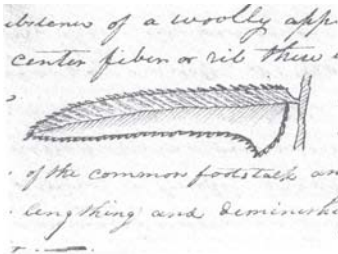 of a woolly app
center fiber or rib these
of the common footstalk an
lengthing and deminishi